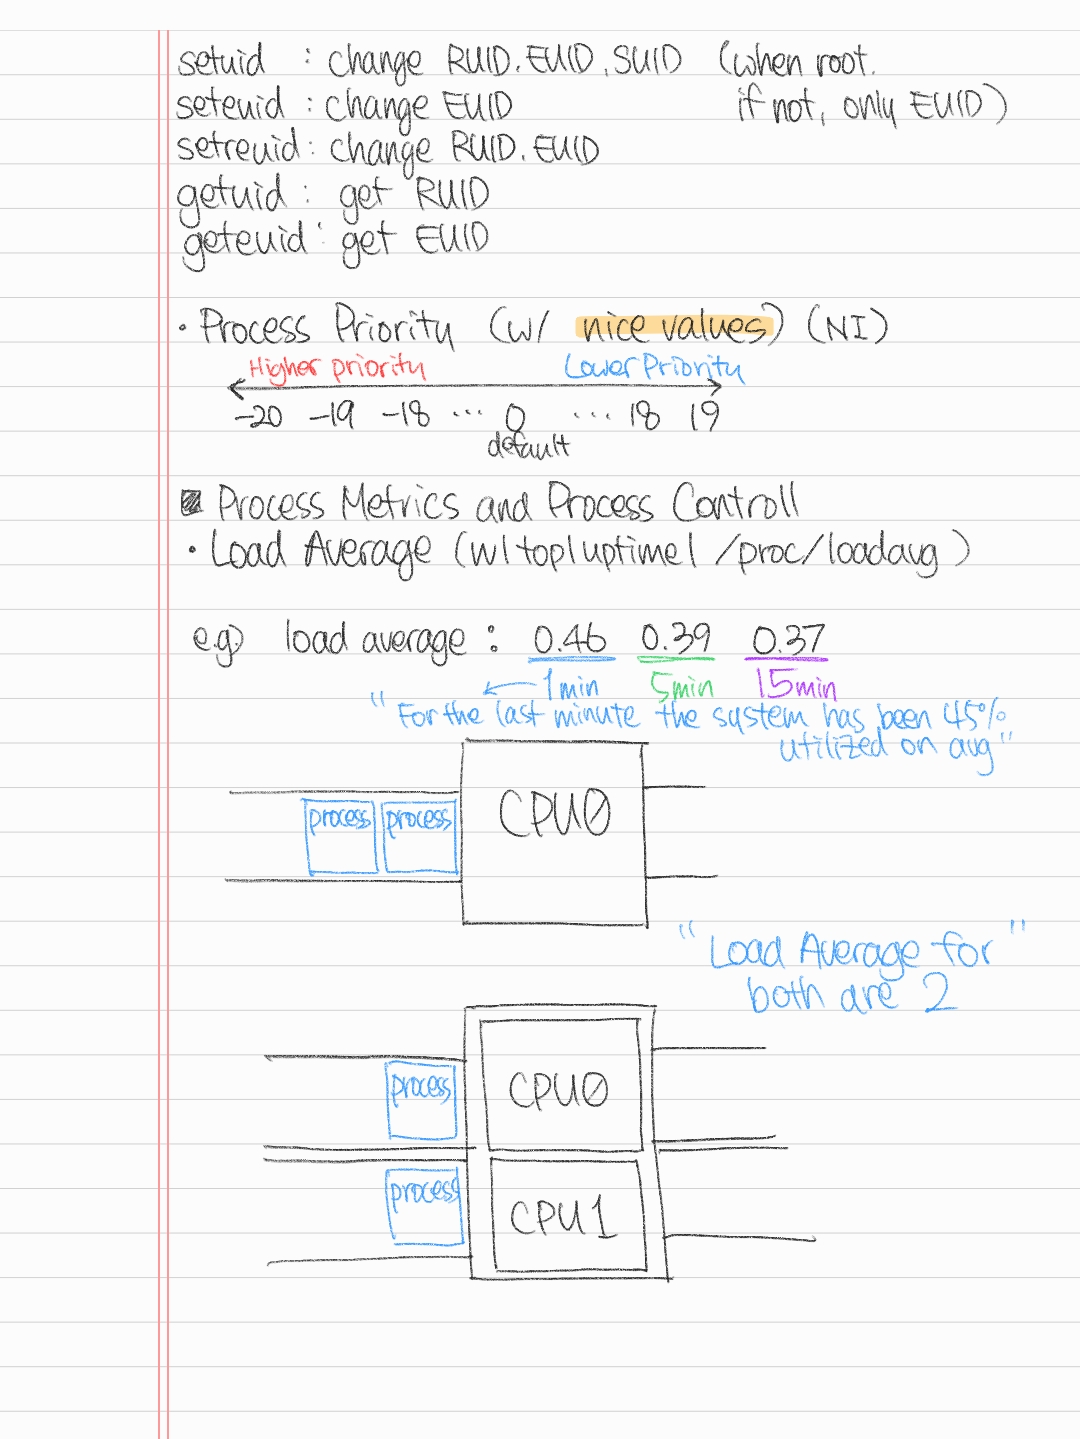 setuid : change RUID.EUID.SUID (when root.
seteuid : change EUID if not, only EUID)
setreuid : change RUID.EUID
getuid : get RUID
geteuid : get EUID
• Process Priority (w/ nice values) (NI)
Higher priority Lower Priority
-20 -19 -18 ... 0 ... 18 19
default
Process Metrics and Process Controll
• Load Average (w/top|uptime| /proc/loadavg)
e.g) load average : 0.46 0.39 0.37
← 1min 5min 15min
"For the last minute the system has been 45%
utilized on avg"
process process CPU0
"Load Average for"
both are 2
process CPU0
process CPU1